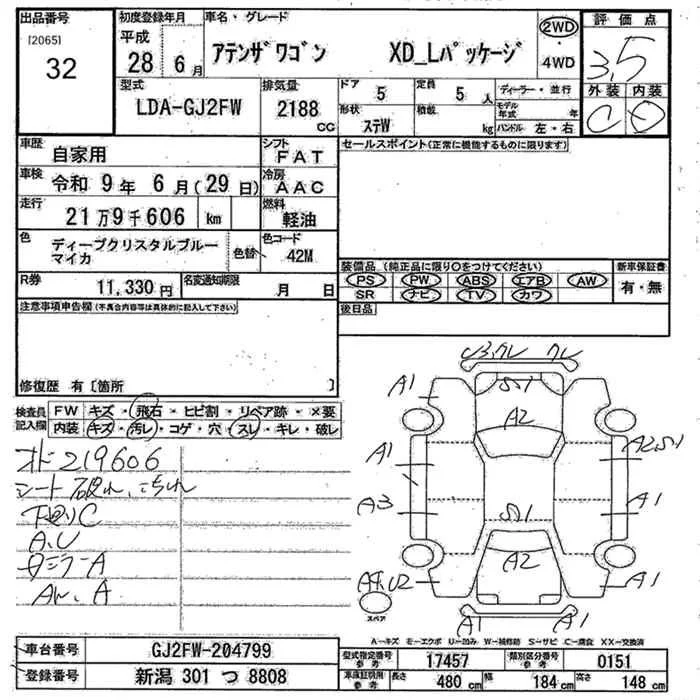 出品番号
[2065]
32
初度登録年月
平成
28 6月
車名・グレード
アテンザワゴン XD_Lパッケージ
2WD
・
4WD
評価点
3.5
外装 内装
C D
型式
LDA-GJ2FW
排気量
2188
CC
ドア 5
定員 5 人
ディーラー・並行
形状 ステW
積載 kg
モデル年式 年
ハンドル 左・右
車歴 自家用
シフト FAT
セールスポイント(正常に機能するものに限ります)
車検 令和 9年 6月(29日)
冷房 AAC
走行 21万9千606 km
燃料 軽油
色 ディープクリスタルブルーマイカ
色替
色コード 42M
装備品(純正品に限り○をつけてください)
新車保証書
PS PW ABS エアB AW
SR ナビ TV カワ
有・無
R券 11,330円
名変通知期限 月 日
後日品
注意事項申告欄(不具合内容等は具体的に記入して下さい)
修復歴 有〔箇所 〕
検査員記入欄
FW キズ・飛石・ヒビ割・リペア跡・×要
内装 キズ・汚レ・コゲ・穴・スレ・キレ・破レ
オド219606
シート破れ、こわれ
下廻りC
A,U
カジラーA
AW、A
U3,クレ クレ
A1 SS1
A2
A1 A2,S1
A3 A1
SS1
A2
A1
A1 A1
スペア
A-キズ M-エクボ U-凹み W-補修跡 S-サビ C-腐食 XX-交換済
車台番号 GJ2FW-204799
登録番号 新潟 301 つ 8808
型式指定番号 参考 17457
類別区分番号 参考 0151
車庫証明用 参考 長さ 480 cm 幅 184 cm 高さ 148 cm